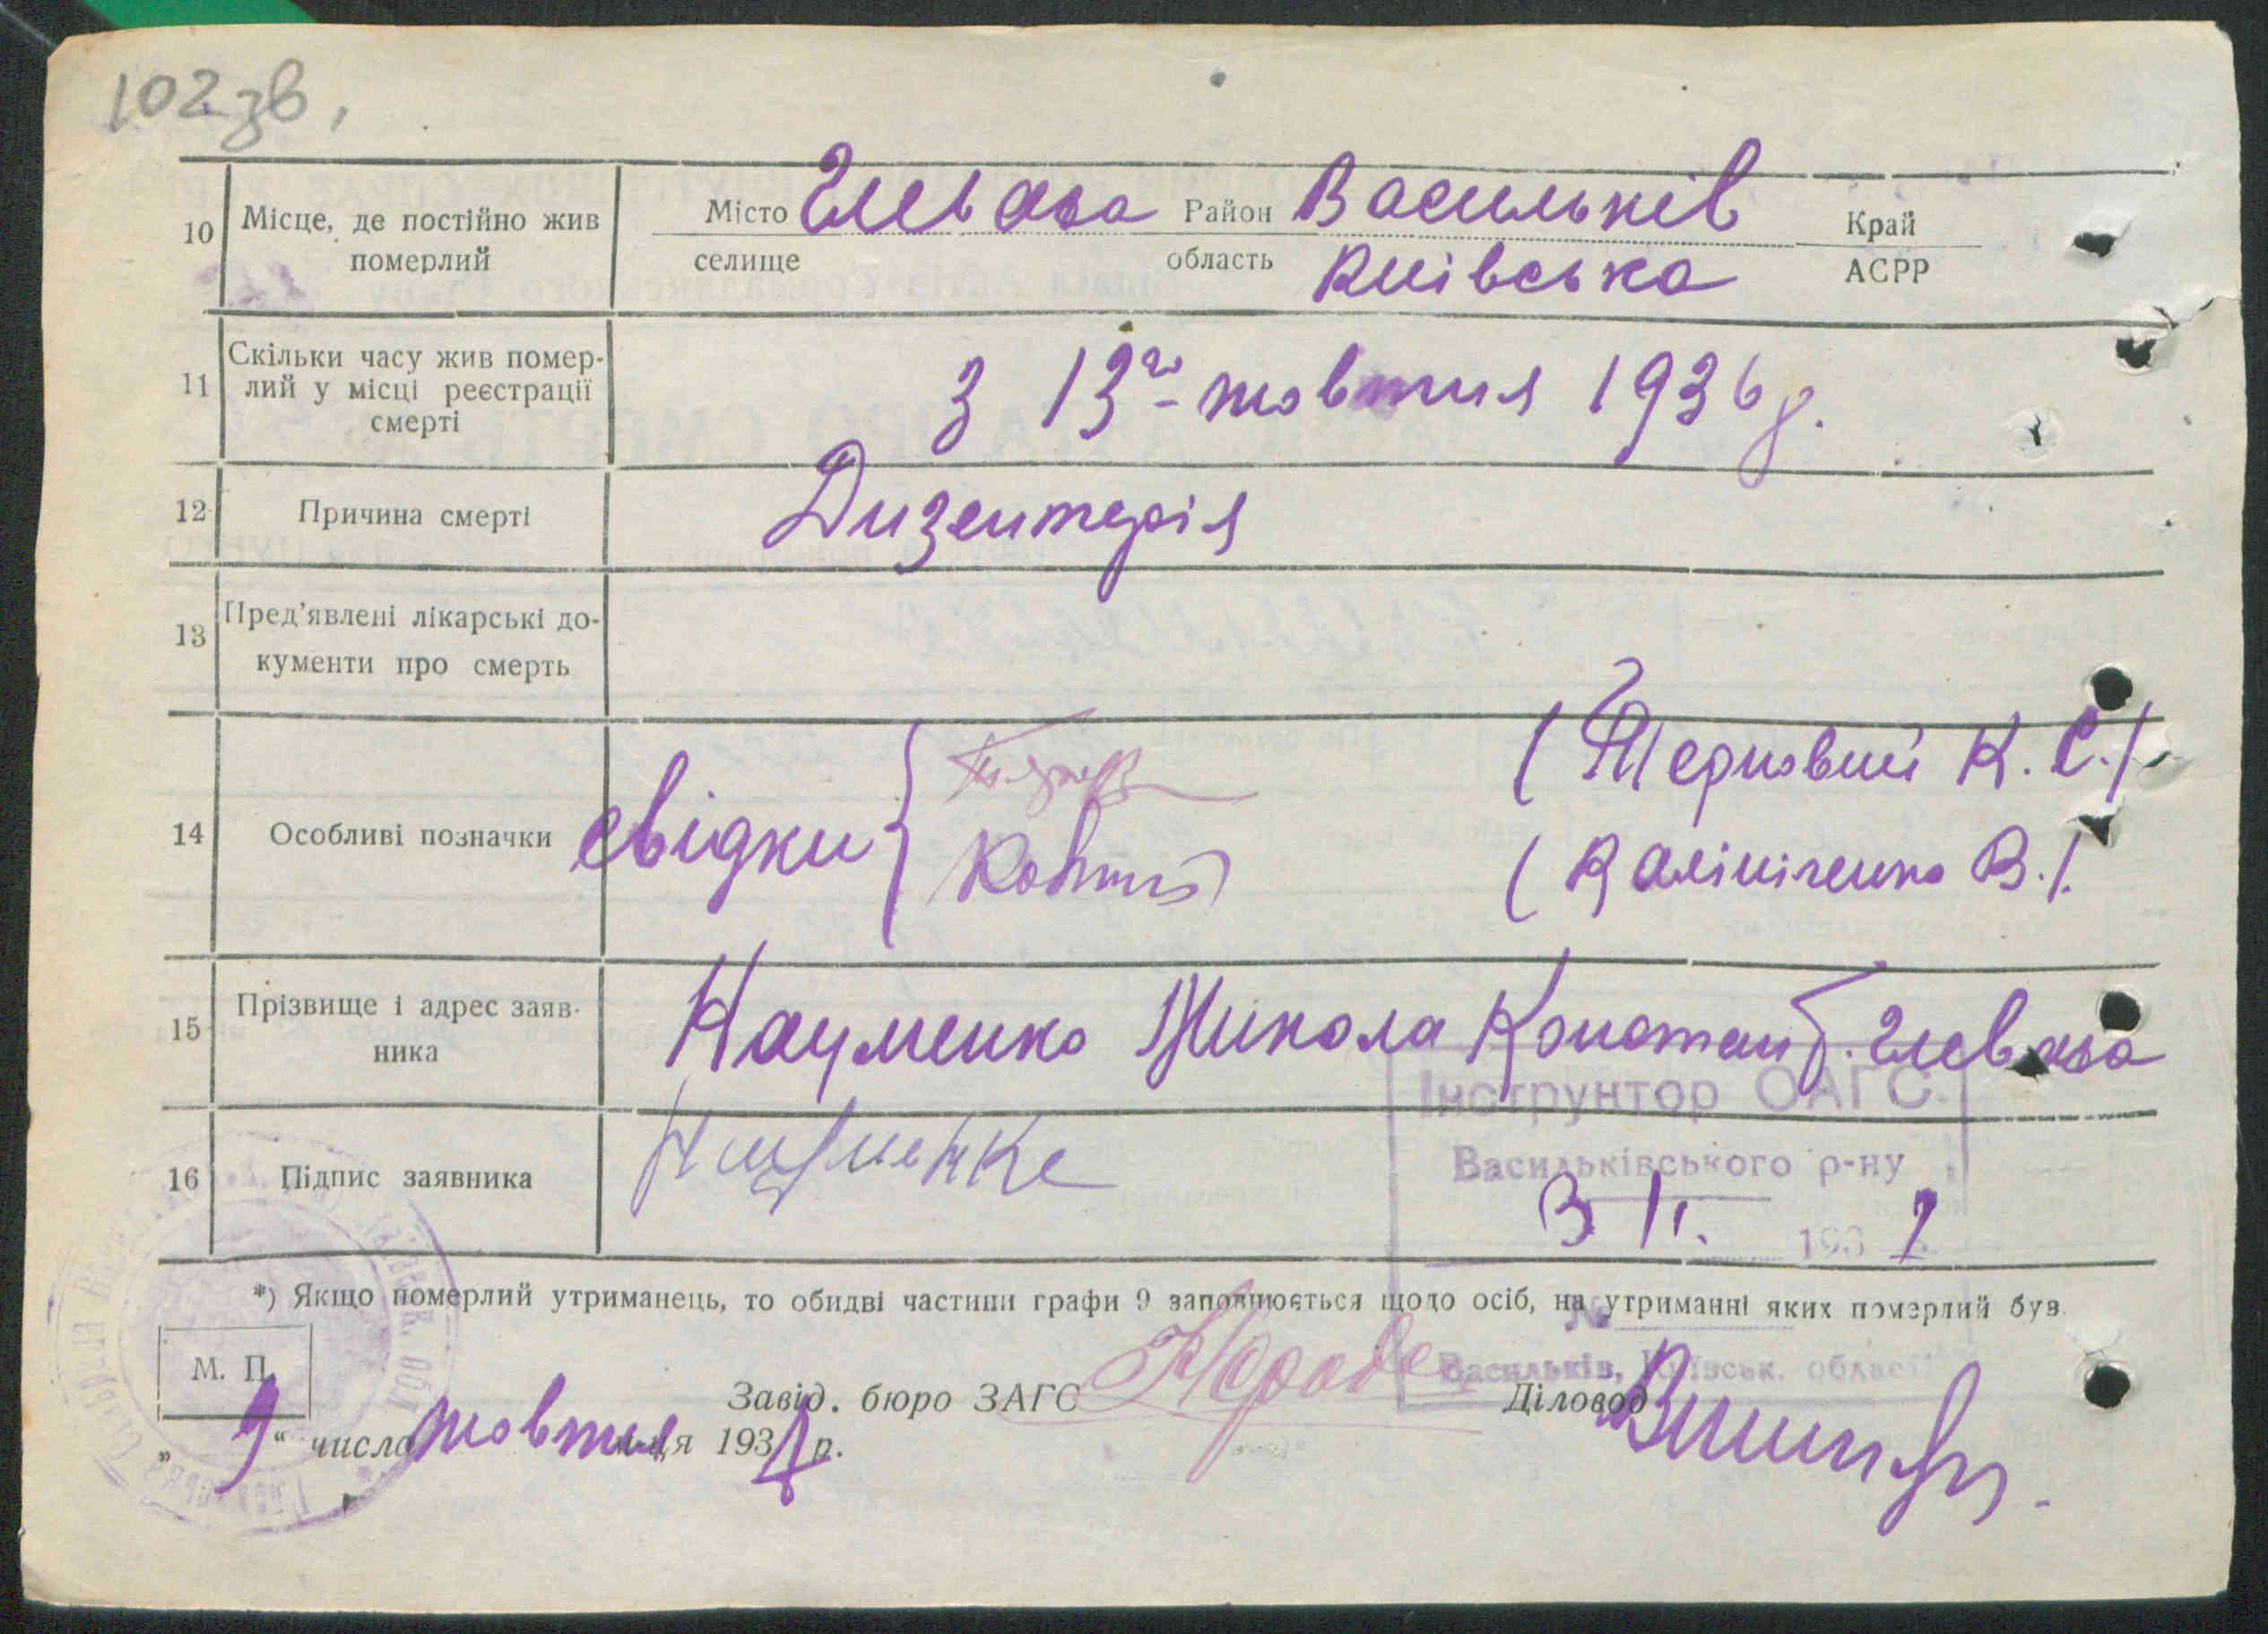 102 зв.
10 Місце, де постійно жив померлий
Місто Глеваха Район Васильків Край
селище область Київська АСРР
11 Скільки часу жив помер-
лий у місці реєстрації
смерті
З 13го жовтня 1936 р.
12 Причина смерті Дизентерія
13 Пред'явлені лікарські до-
кументи про смерть
14 Особливі позначки свідки
(Терновий К. С.)
(Калініченко В.)
15 Прізвище і адрес заяв-
ника
Науменко Микола Констант. Глеваха
16 Підпис заявника Науменко
Інструктор ОАГС
Васильківського р-ну
3 II. 1937
*) Якщо померлий утриманець, то обидві частини графи 9 заповнюється щодо осіб, на утриманні яких померлий був.
№
Васильків, Київськ. області
М. П.
Завід. бюро ЗАГС Діловод
„ 9 “ числа жовтня м-ця 1937 р.